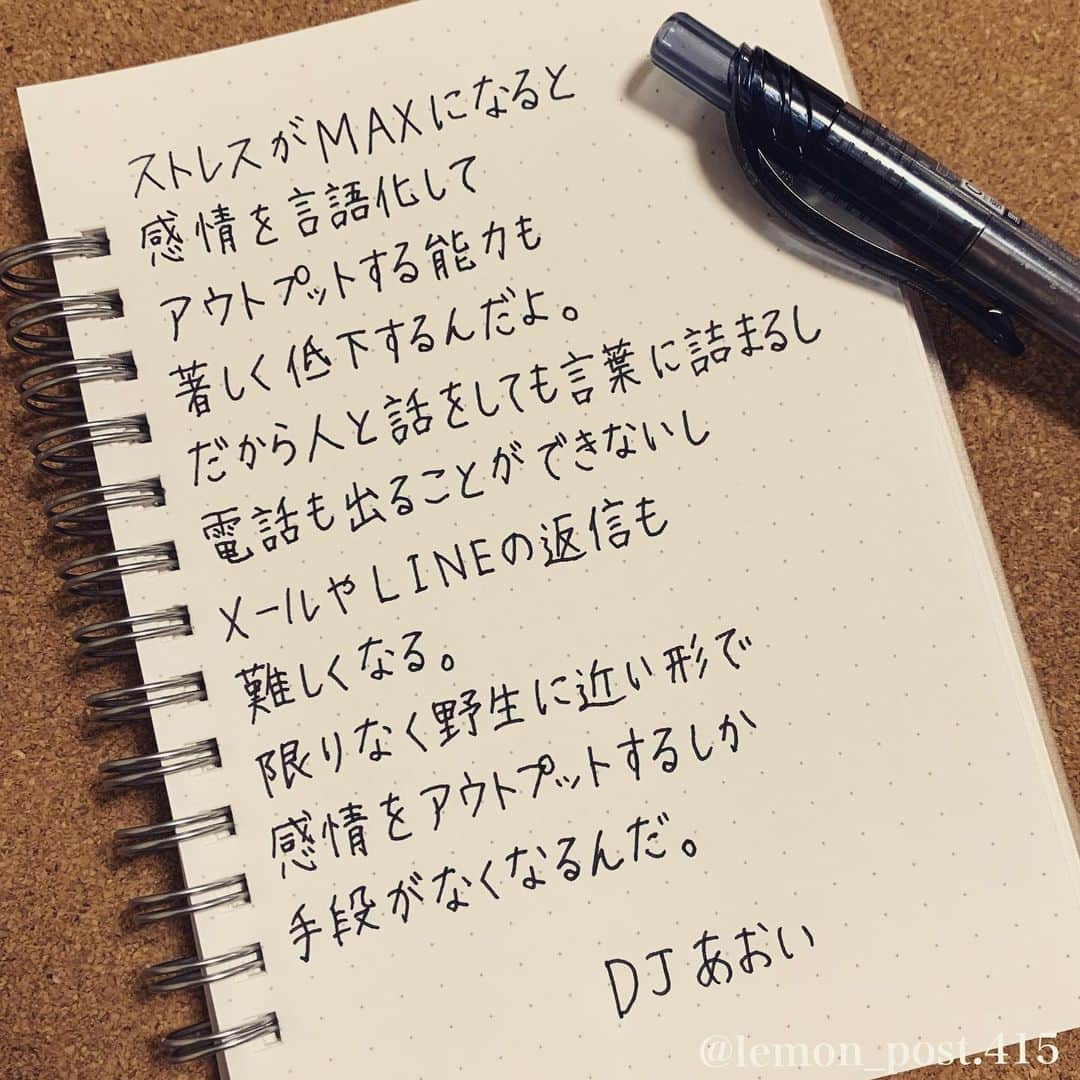 ストレスがMAXになると
感情を言語化して
アウトプットする能力も
著しく低下するんだよ。
だから人と話をしても言葉に詰まるし
電話も出ることができないし
メールやLINEの返信も
難しくなる。
限りなく野生に近い形で
感情をアウトプットするしか
手段がなくなるんだ。
DJあおい
@lemon_post.415